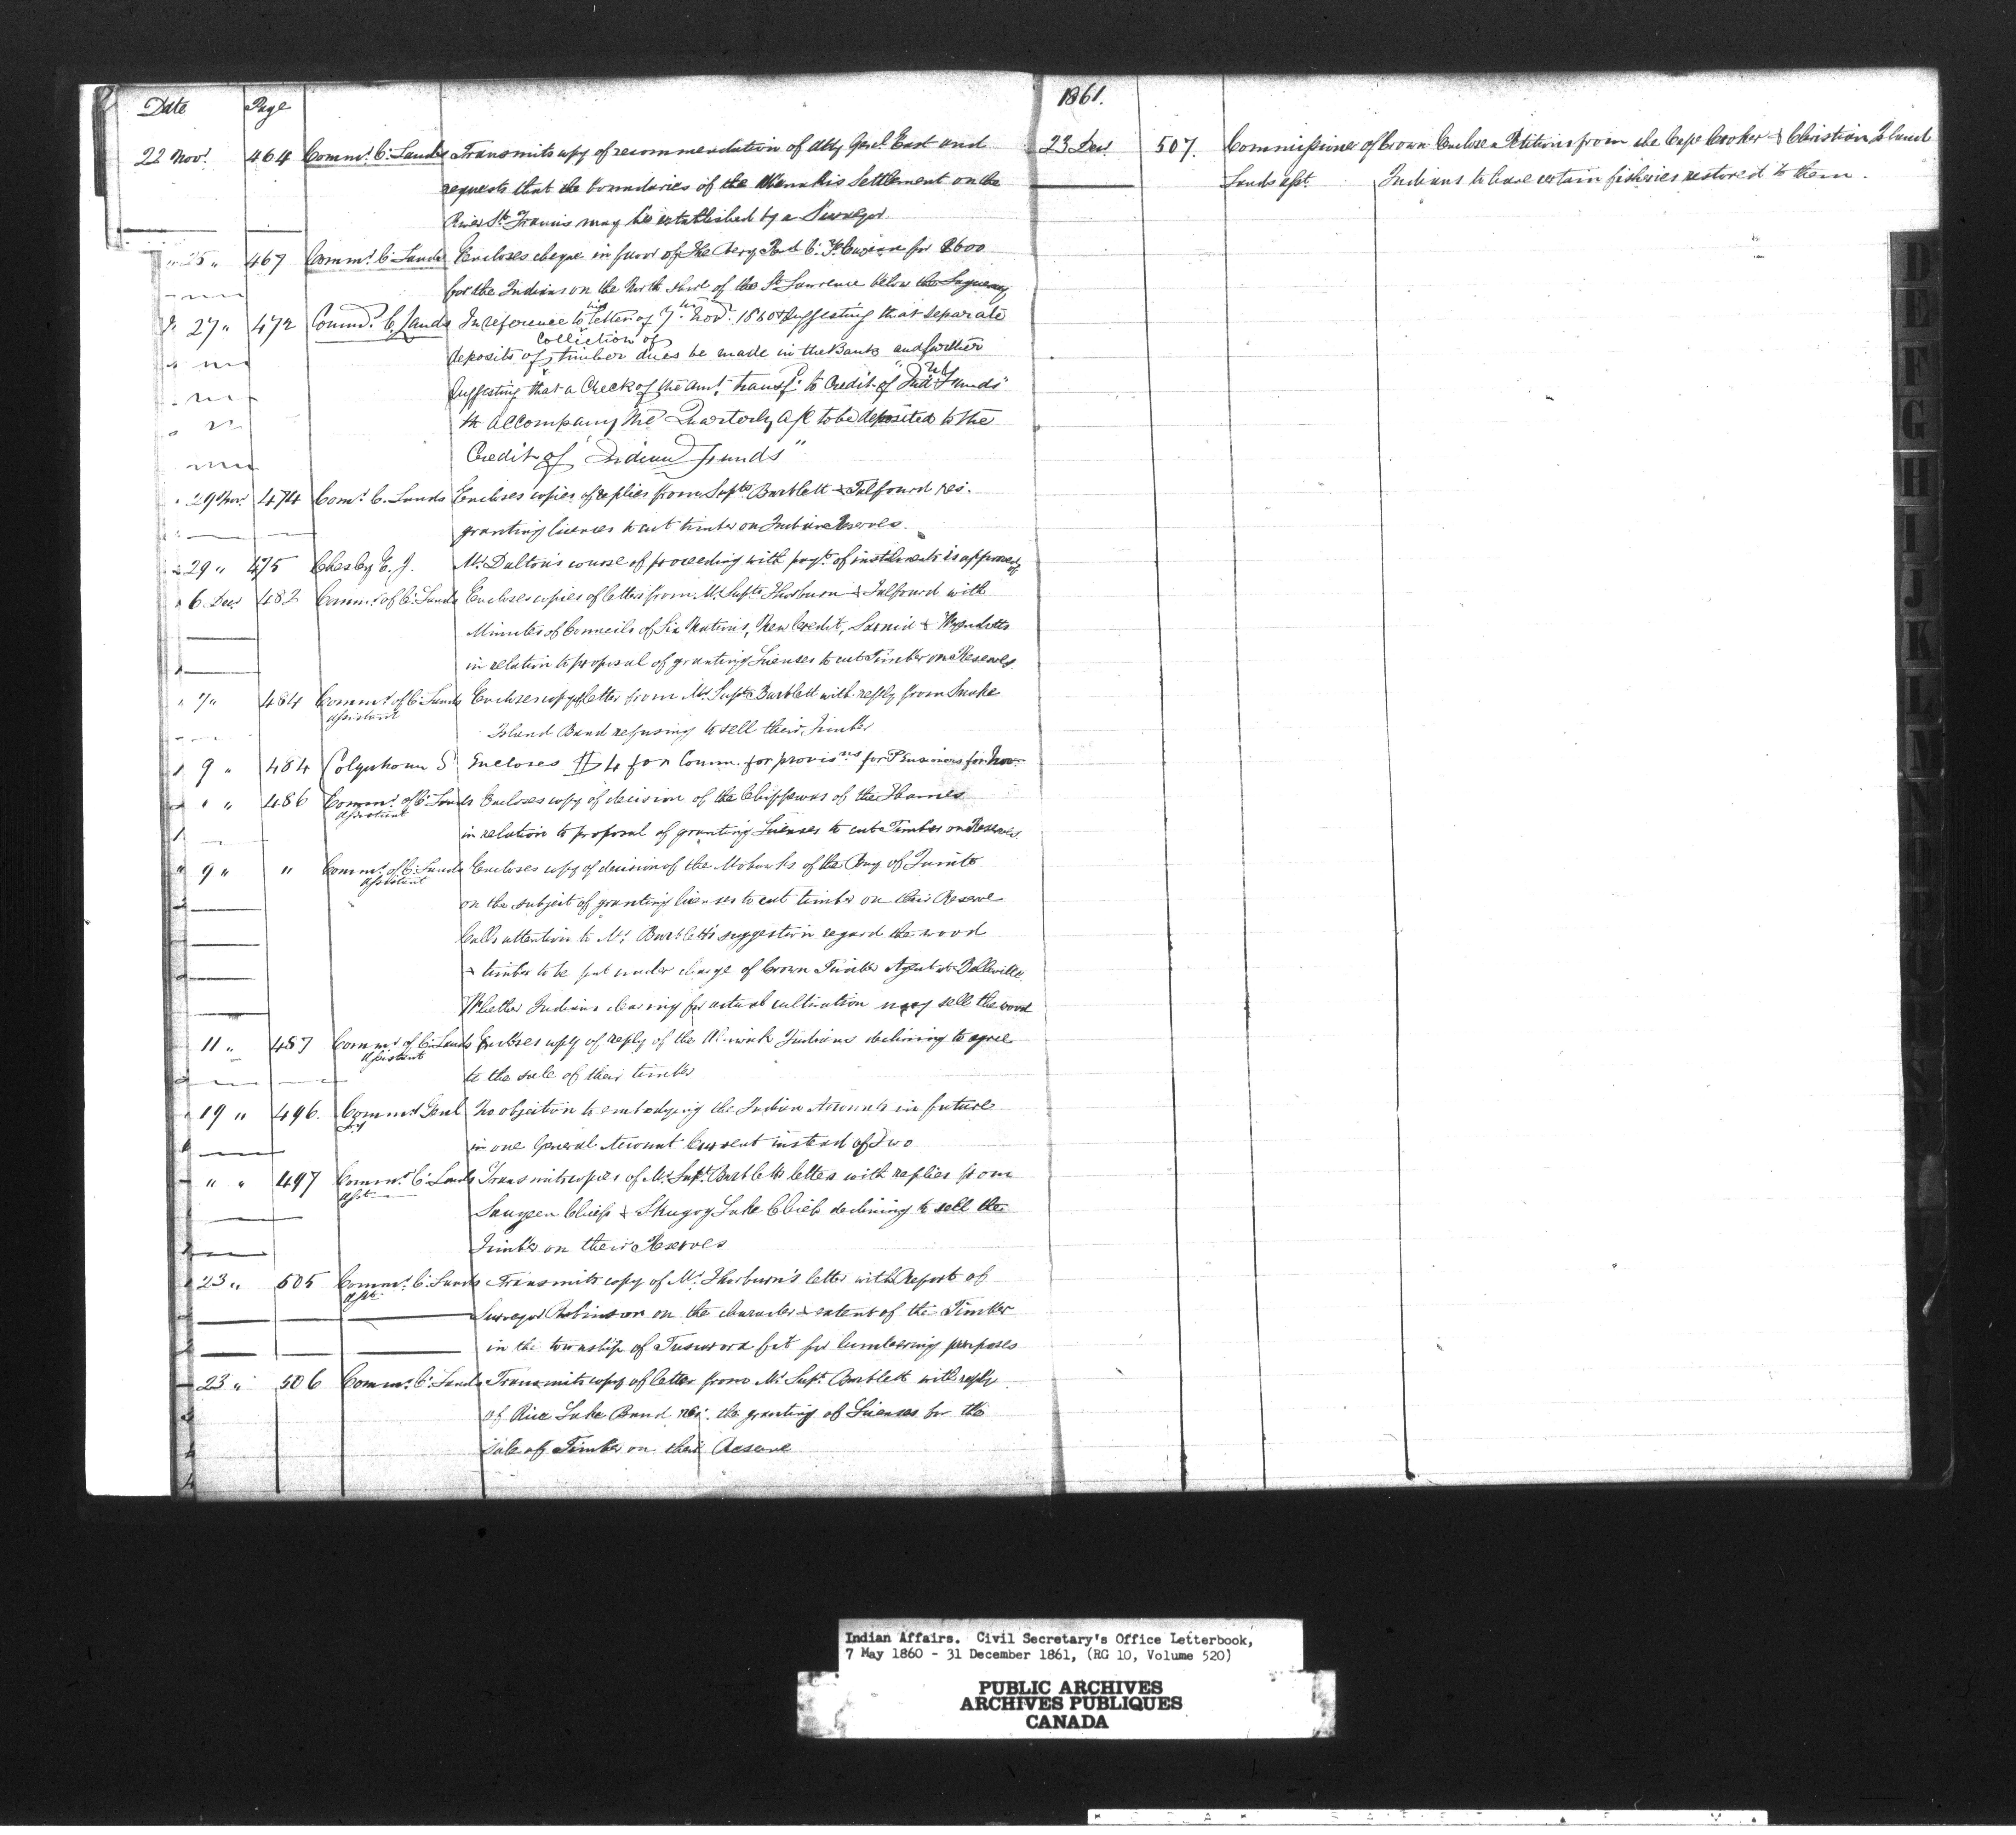 Date Page
22 Nov. 464 Commr. C. Lands Transmits copy of recommendation of Atty Genl. East and
requests that the boundaries of the Abenakis Settlement on the
River St. Francis may be established by a Surveyor.
" 25 " 467 Commr. C. Lands Encloses cheque in favor of The Very Revd. C. F. for $600
for the Indians on the North shore of the St. Lawrence below the Saguenay
" 27 " 472 Commr. C. Lands In reference to his letter of 7th Novr. 1860 & suggesting that separate
deposits of collection of timber dues be made in the Banks and further
suggesting that a Check of the amt. transfd. to Credit of "Indn. Funds"
to accompany the Quarterly a/c to be deposited to the
Credit of "Indian Funds"
" 29 Nov. 474 Comr. C. Lands Encloses copies of replies from Supts. Bartlett & Talfourd res.
granting licences to cut timber on Indian Reserves.
" 29 " 475 Chesley E. J. Mr. Dalton's course of proceeding with payt. of instalments is approved of
" 6 Decr 482 Commr. of C. Lands Encloses copies of letters from Mr. Supts. Thorburn & Talfourd with
Minutes of Councils of Six Nations, New Credit, Sarnia & Wyandotts
in relation to proposal of granting Licenses to cut Timber on Reserves.
" 7 " 484 Commr. of C. Lands Encloses copy of letter from Mr. Supt. Bartlett with reply from Snake
assistant
Island Band refusing to sell their Timber
" 9 " 484 Colquhoun S Encloses $4 for Comm. for provisns for Pensioners for Novr
" " " 486 Commr. of C. Lands Encloses copy of decision of the Chippewas of the Thames
assistant
in relation to proposal of granting Licenses to cut Timber on Reserves.
" 9 " " Commr. of C. Lands Encloses copy of decision of the Mohawks of the Bay of Quinte
assistant
on the subject of granting licenses to cut timber on their Reserve
Calls attention to Mr. Bartlett's suggestion regard the wood
& timber to be put under charge of Crown Timber Agent at Belleville
Whether Indians clearing for actual cultivation may sell the wood
11 " 487 Commr of C. Lands Encloses copy of reply of the Alnwick Indians declining to agree
assistant
to the sale of their timber
" 19 " 496. Commr. Genl No objection to embodying the Indian Accounts in future
in one General Account Current instead of Two
" " 497 Commr. C. Lands Transmits copies of Mr. Supt. Bartletts letter with replies from
asst.
Saugeen Chiefs & Skugog Lake Chiefs declining to sell the
Timber on their Reserves
23 " 505 Commr. C. Lands Transmits copy of Mr. Thorburn's letter with Report of
asst.
Surveyor Robinson on the character & extent of the Timber
in the township of Tuscarora fit for lumbering purposes
23 " 506 Commr. C. Lands Transmits copy of letter from Mr. Supt. Bartlett with reply
of Rice Lake Band res: the granting of Licenses for the
sale of Timber on their Reserve
1861.
23 Decr. 507. Commissioner of Crown Encloses Petitions from the Cape Croker & Christian Island
Lands asst. Indians to have certain fisheries restored to them.
D
E
F
G
H
I
J
K
L
M
N
O
P
Q
R
S
Indian Affairs. Civil Secretary's Office Letterbook,
7 May 1860 - 31 December 1861, (RG 10, Volume 520)
PUBLIC ARCHIVES
ARCHIVES PUBLIQUES
CANADA